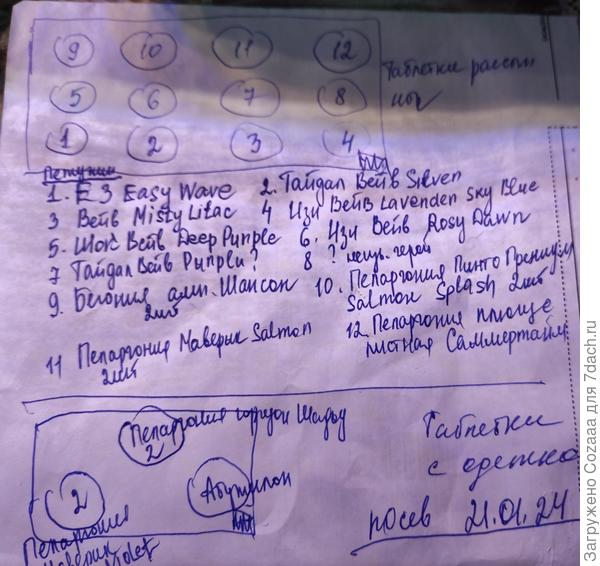 9 10 11 12
Таблетки рассып
ног
5 6 7 8
1 2 3 4
Петунии
1. E3 Easy Wave 2. Тайдал Вейв Silver
3 Вейв Misty Lilac 4 Изи Вейв Lavender Sky Blue
5. Шок Вейв Deep Purple 6. Изи Вейв Rosy Dawn
7 Тайдал Вейв Purple? 8 ? неизв. герой
9. Бегония амп. Шансон 10. Пеларгония Пинто Премиум
2шт Salmon Splash 2шт
11 Пеларгония Маверик Salmon 12. Пеларгония плюще
2шт листная Саммертайм
Пеларгония
2
2 Абутилон
Пеларгония
Маверик
Violet
Таблетки
с одежко
посев 21.01.24
Загружено Cozaaa для 7dach.ru